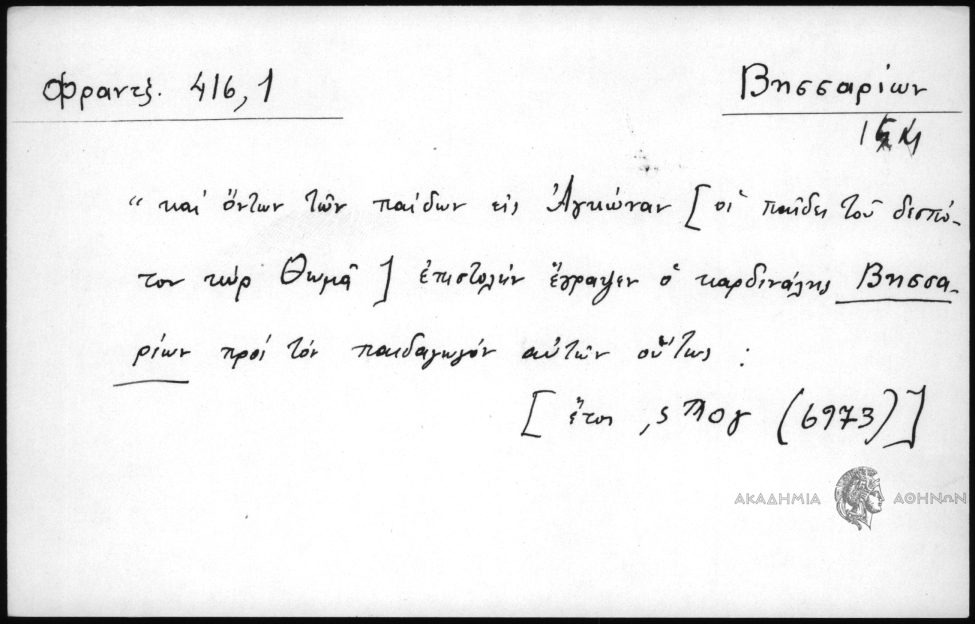 Φραντζ. 416,1
Βησσαρίων
"καί ὄντων τῶν παίδων εἰς Ἀγκώναν [οἱ παῖδες τοῦ δεσπό-
του κύρ Θωμᾶ] ἐπιστολήν ἔγραψεν ὁ καρδινάλης Βησσα-
ρίων πρός τόν παιδαγωγόν αὐτῶν οὕτως :
[ἔτος ,ςϠογ (6973)]
ΑΚΑΔΗΜΙΑ ΑΘΗΝΩΝ